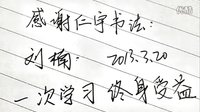 感谢仁宇书法：
刘楠： 2013.3.20
一次学习 终身受益